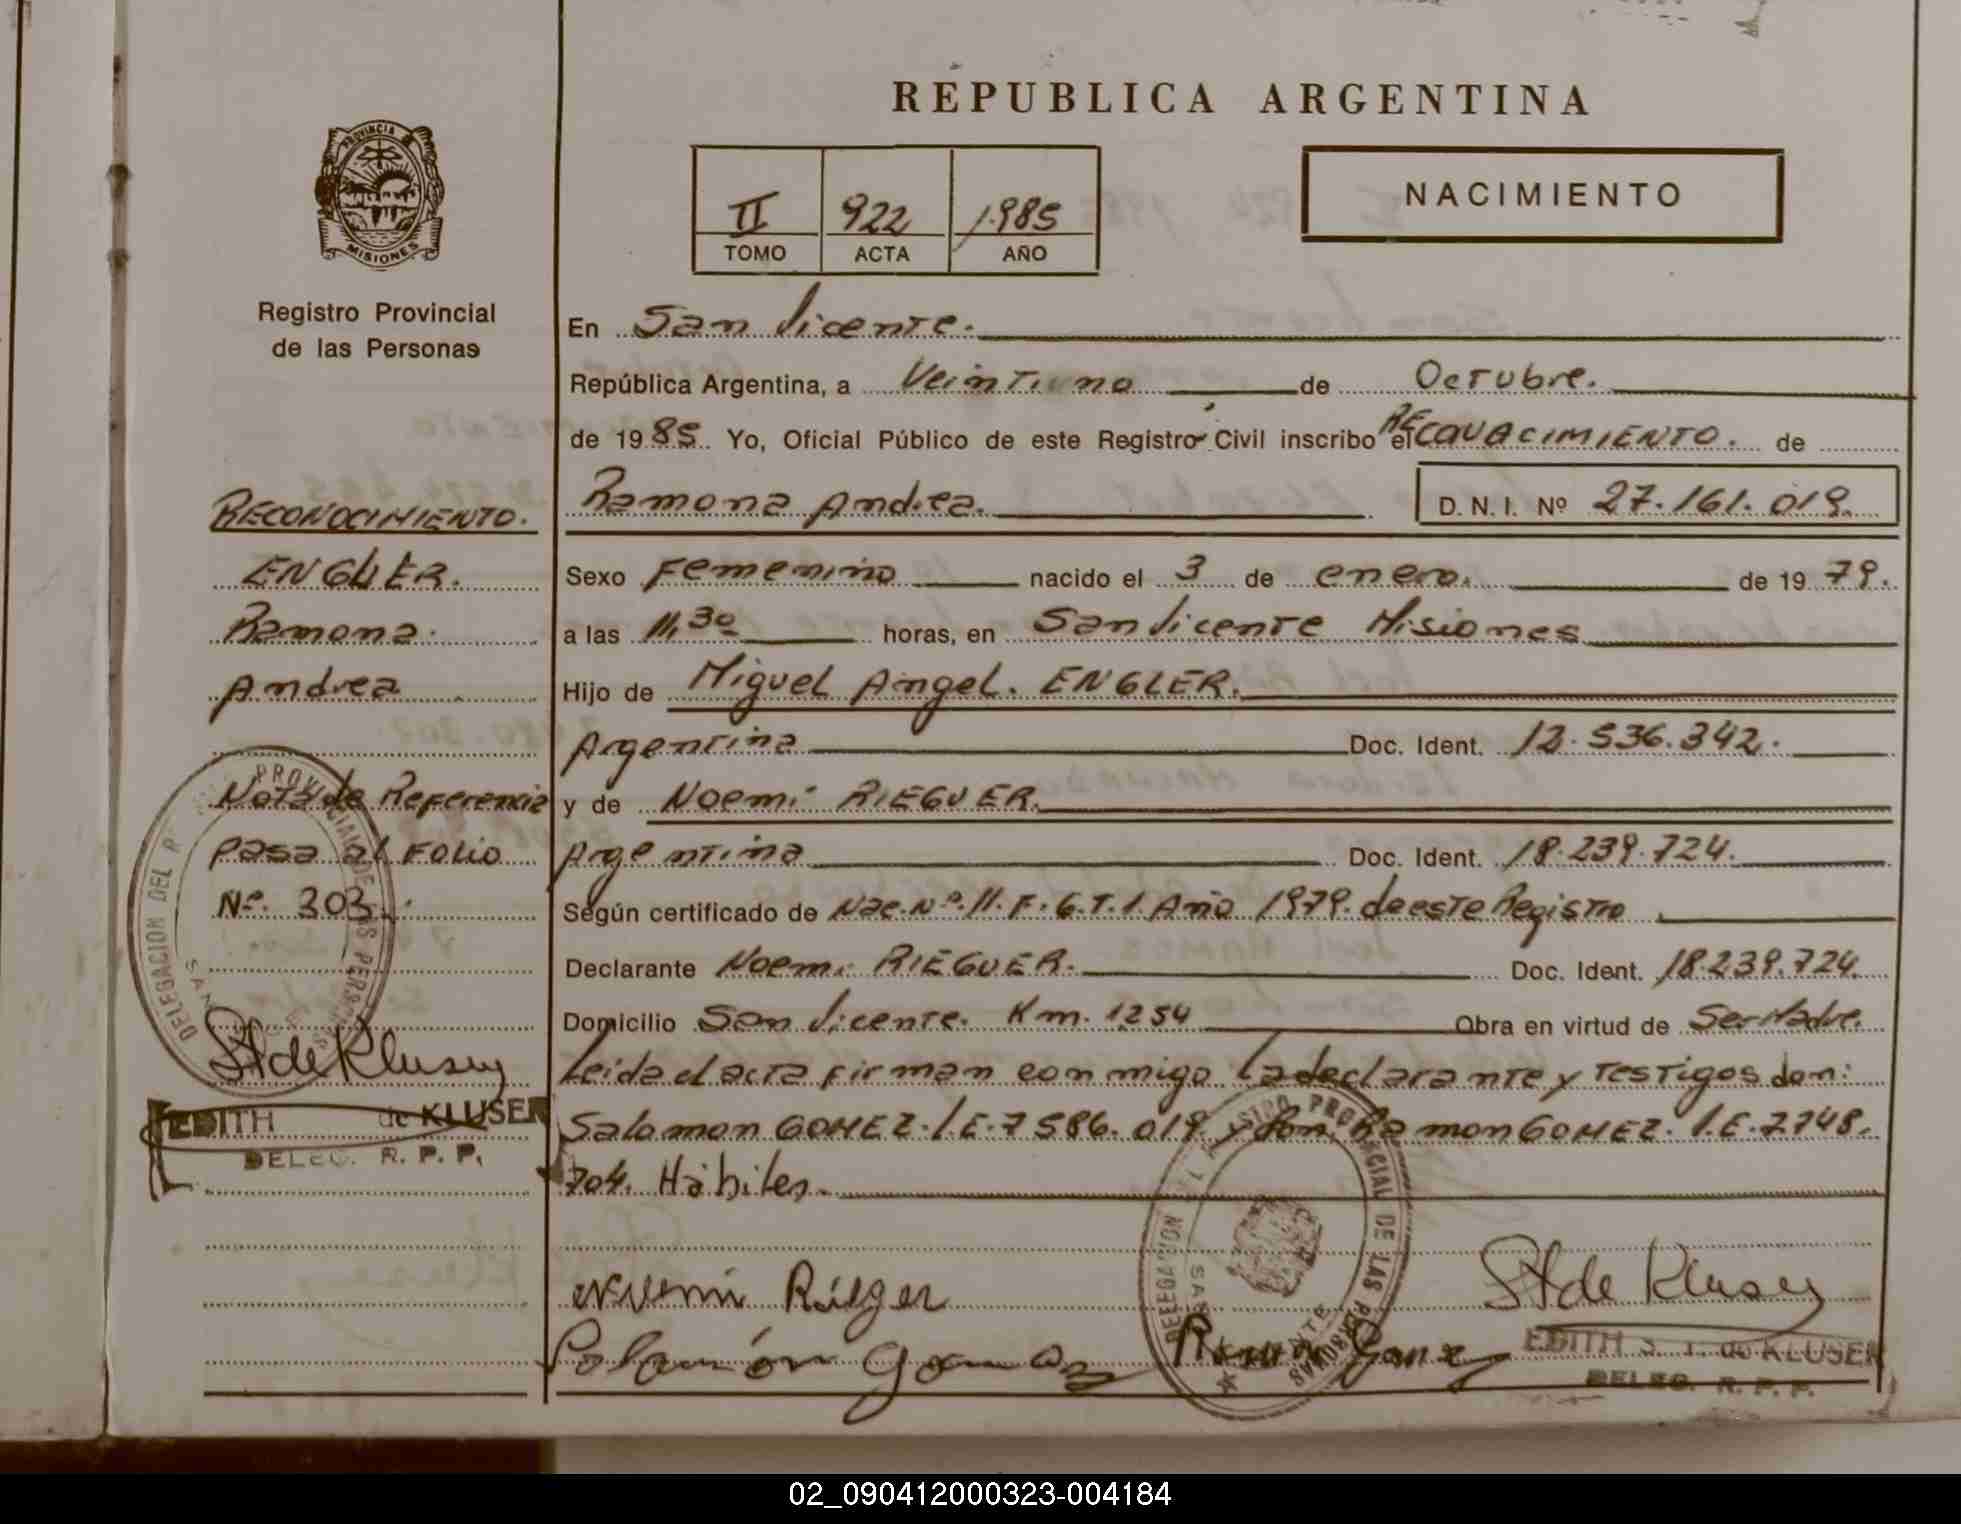 REPUBLICA ARGENTINA
PROVINCIA
MISIONES
II 922 1.985
TOMO ACTA AÑO
NACIMIENTO
Registro Provincial
de las Personas
En San Vicente.
República Argentina, a Veintiuno de Octubre.
de 1985. Yo, Oficial Público de este Registro Civil inscribo el de
Ramona Andrea. D. N. I. Nº 27.161.019.
Sexo Femenino nacido el 3 de enero. de 1979.
a las 11,30 horas, en San Vicente Misiones
Hijo de Miguel Angel. ENGLER.
Argentina Doc. Ident. 12.536.342.
y de Noemi RIEGUER.
Argentina Doc. Ident. 18.239.724.
Según certificado de Nac. Nº. 11. F. 6. T. 1. Año 1979. de este Registro
Declarante Noemi RIEGUER. Doc. Ident. 18.239.724.
Domicilio San Vicente. Km. 1254 Obra en virtud de Ser Madre.
Leida el acta firman conmigo La declarante y Testigos don:
Salomon GOMEZ. L.E. 7 586. 019 y don Ramon GOMEZ. L.E. 7.748.
704. Hábiles.
RECONOCIMIENTO.
ENGLER.
Ramona
Andrea
Nota de Referencia
pasa al Folio
Nº. 303
St de Kluser
EDITH de KLUSER
DELEG. R. P. P.
DELEGACION DEL R PROVINCIAL DE LAS PERSONAS
SAN
Noemi
Salamón Gomez
St de Kluser
EDITH S. T. de KLUSER
DELEG. R. P. P.
DELEGACION DEL REGISTRO PROVINCIAL DE LAS PERSONAS
02_090412000323-004184